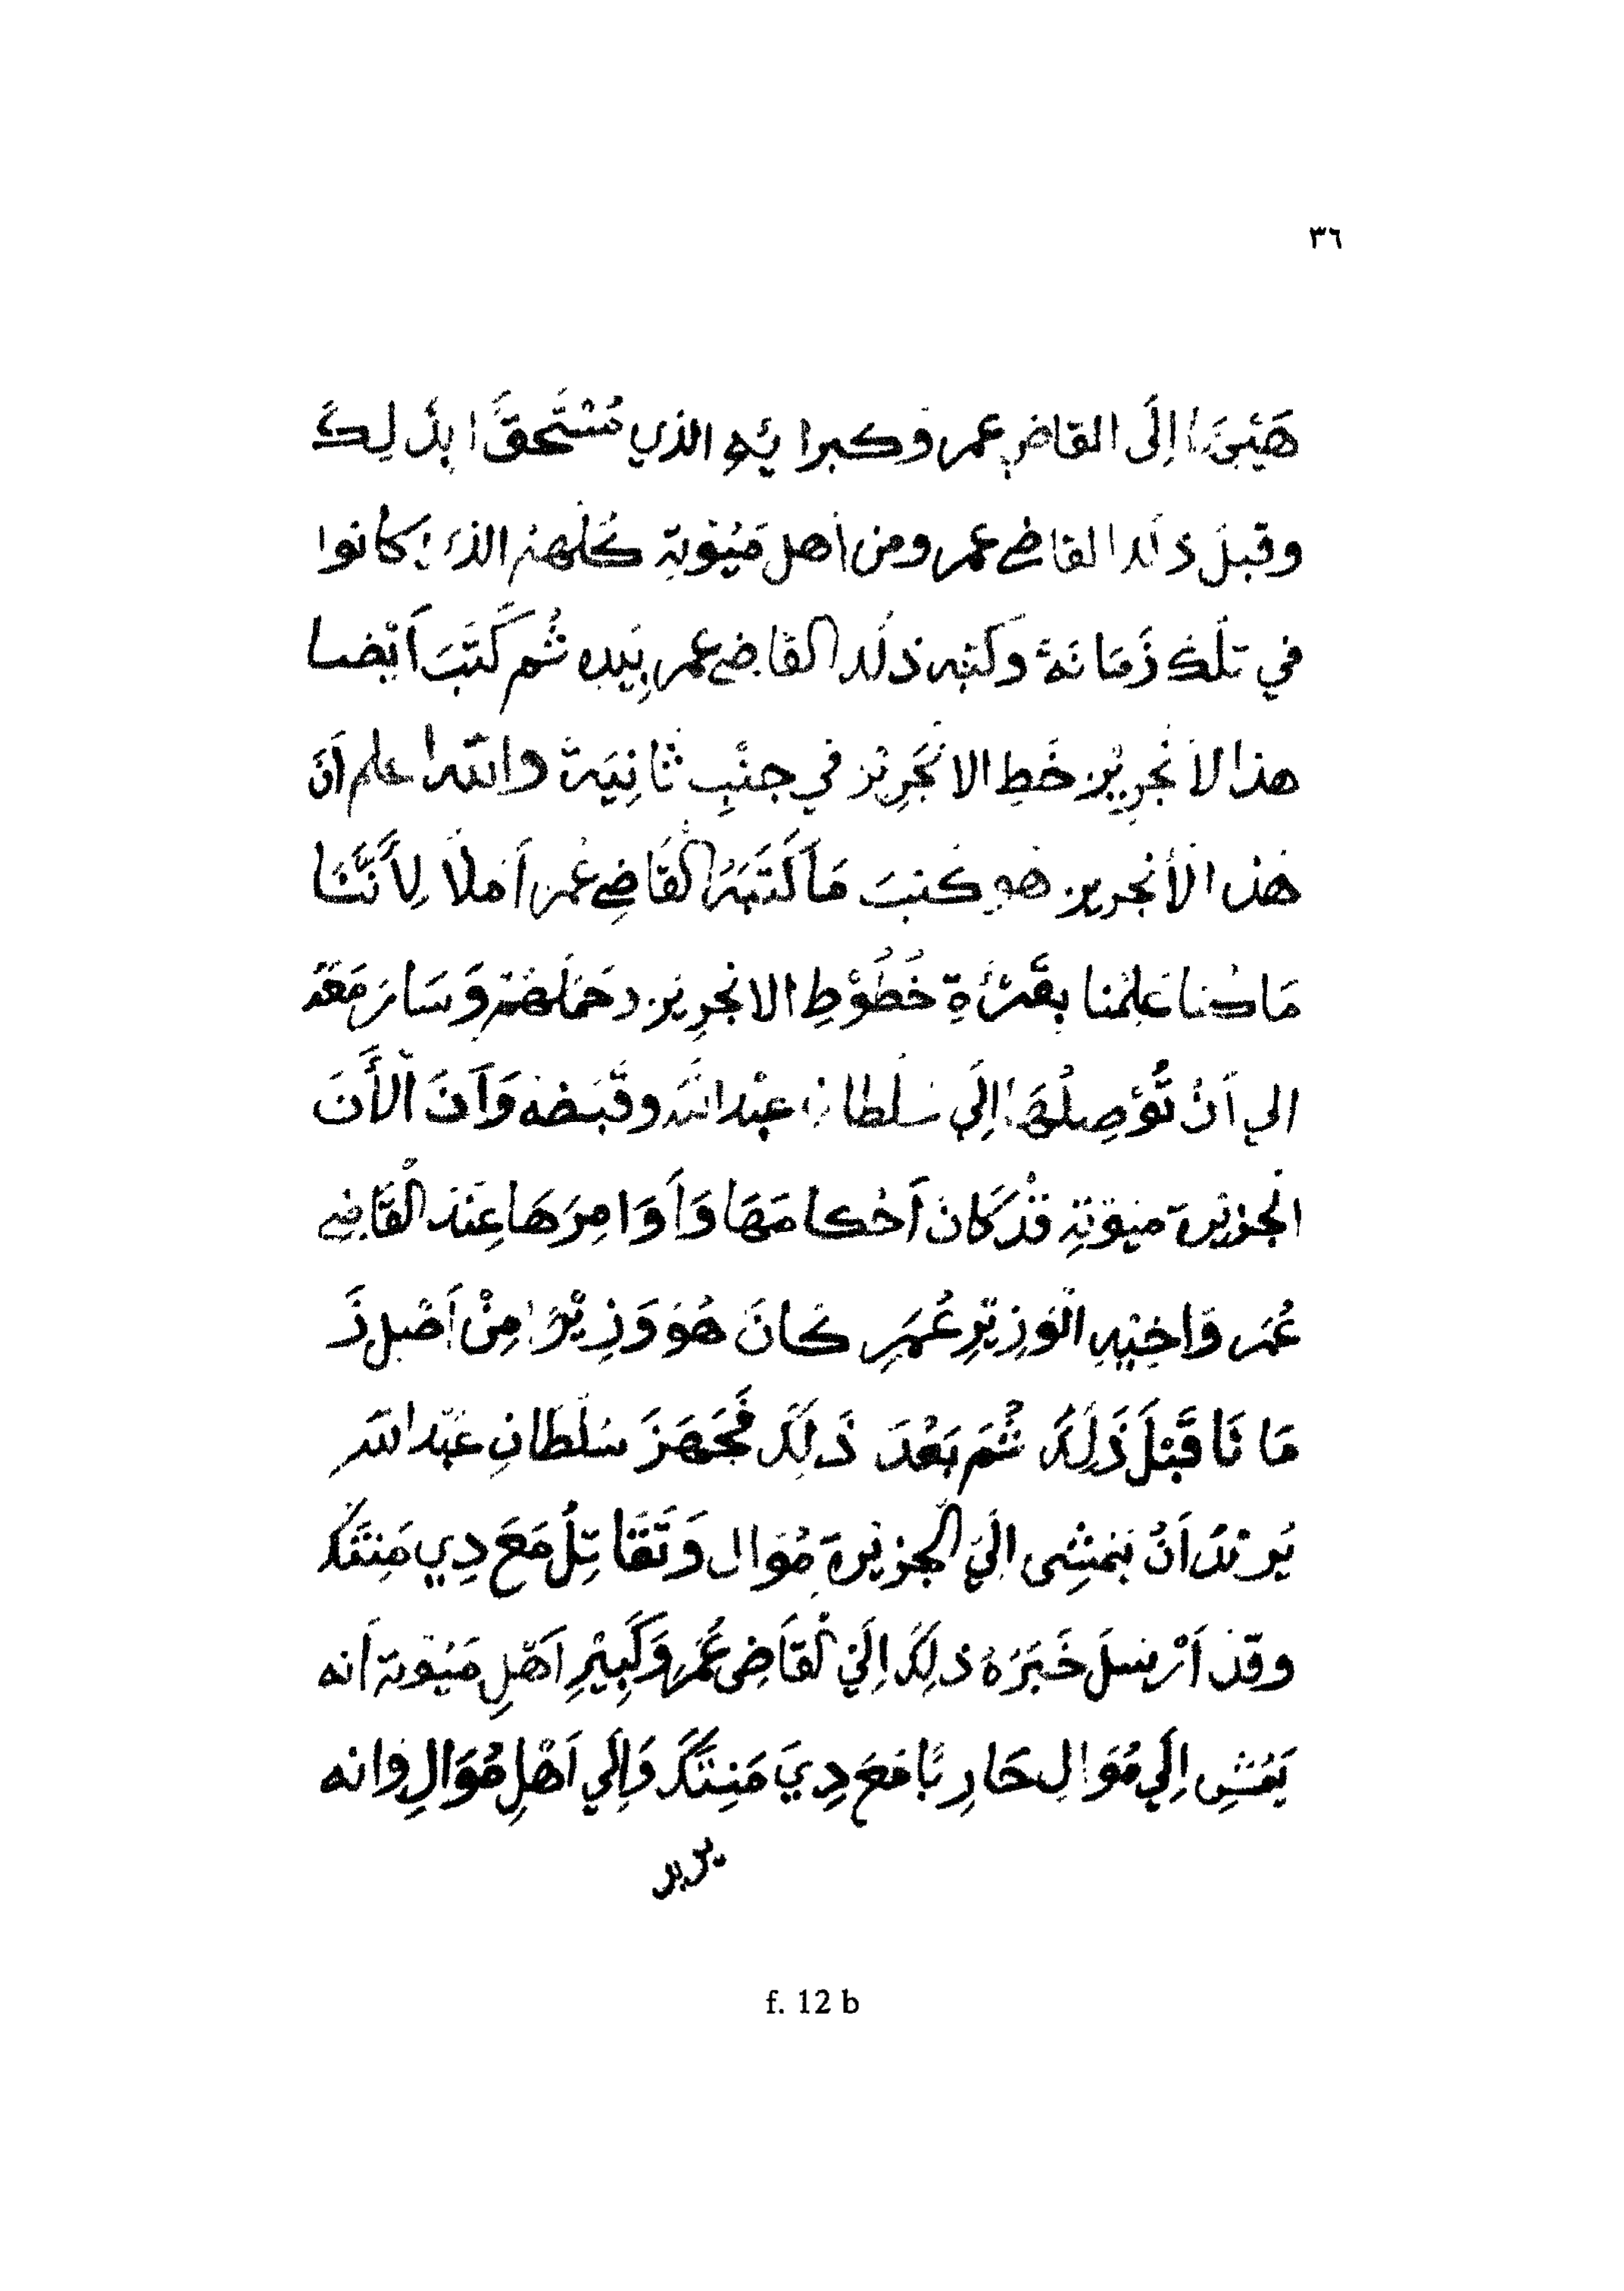 ٣٦
هَيْئًا إِلَى القاضي عمر وكبرائه الذي مُسْتَحِقًّا بِذٰلِكَ
وقبلَ ذلك القاضي عمر ومن أهل مَيُوْتِة كُلّهُمْ الذي كانوا
في تلْكَ زَمَانَةْ وكتبه ذلك القاضي عمر بِيَدِه ثُم كَتَبَ أَيْضا
هذا الأنْجرِيْز خَطِ الانْجَرِيْز في جنْبِ ثَانِيَةْ والله اعلم أنَّ
هٰذ الأنْجريز هو كُتِبَ مَا كَتَبَهُ القَاضِي عُمَر أمْلَا لِأَنَّنَا
مَا كُنا عَلِمْنا بِقَرْءَةِ خُطُوْطِ الانجرِيز وحَمَلَهُمْ وَسَارَ مَعَهُ
الي أَنْ تُوْصِلُهَا إِلَي سُلْطانِ عبْد اللّٰه وقَبَضَه وَأَنَ الْأَنَ
الْجزيْرَة مَيُوْتِة قَدْ كَانَ أَحْكامَهَا وَأَوَامِرَهَا عِنْدَ الْقَاضِي
عُمَر وَاخِيْهِ الْوَزِيْرِ عُمَرِ كَانَ هُوَ وَزِيْرًا مِنْ أَصْلِ زَ
مَانَا قَبْلَ ذَلِكَ ثُمَ بَعْدَ ذَلِكَ فَجَهَزَ سُلْطَانِ عَبْد اللّٰه
يُرِيْدُ أَنْ يَمْشِى الَي الْجزيْرة مُوَال وَتَقَاتِلُ مَعَ دِي مَنِتَكَ
وقَدْ أَرْسَلَ خَبَرُهُ ذلِكَ الَي الْقَاضِى عُمَر وَكَبِيْرِ اَهْلِ مَيُوْتة أَنه
يَمْشِي الَي مُوَال حَارِبًا مَعَ دِيَ مَنِتَكَ وَالَي اَهْلِ مُوَالِ وانه
يريد
f. 12 b